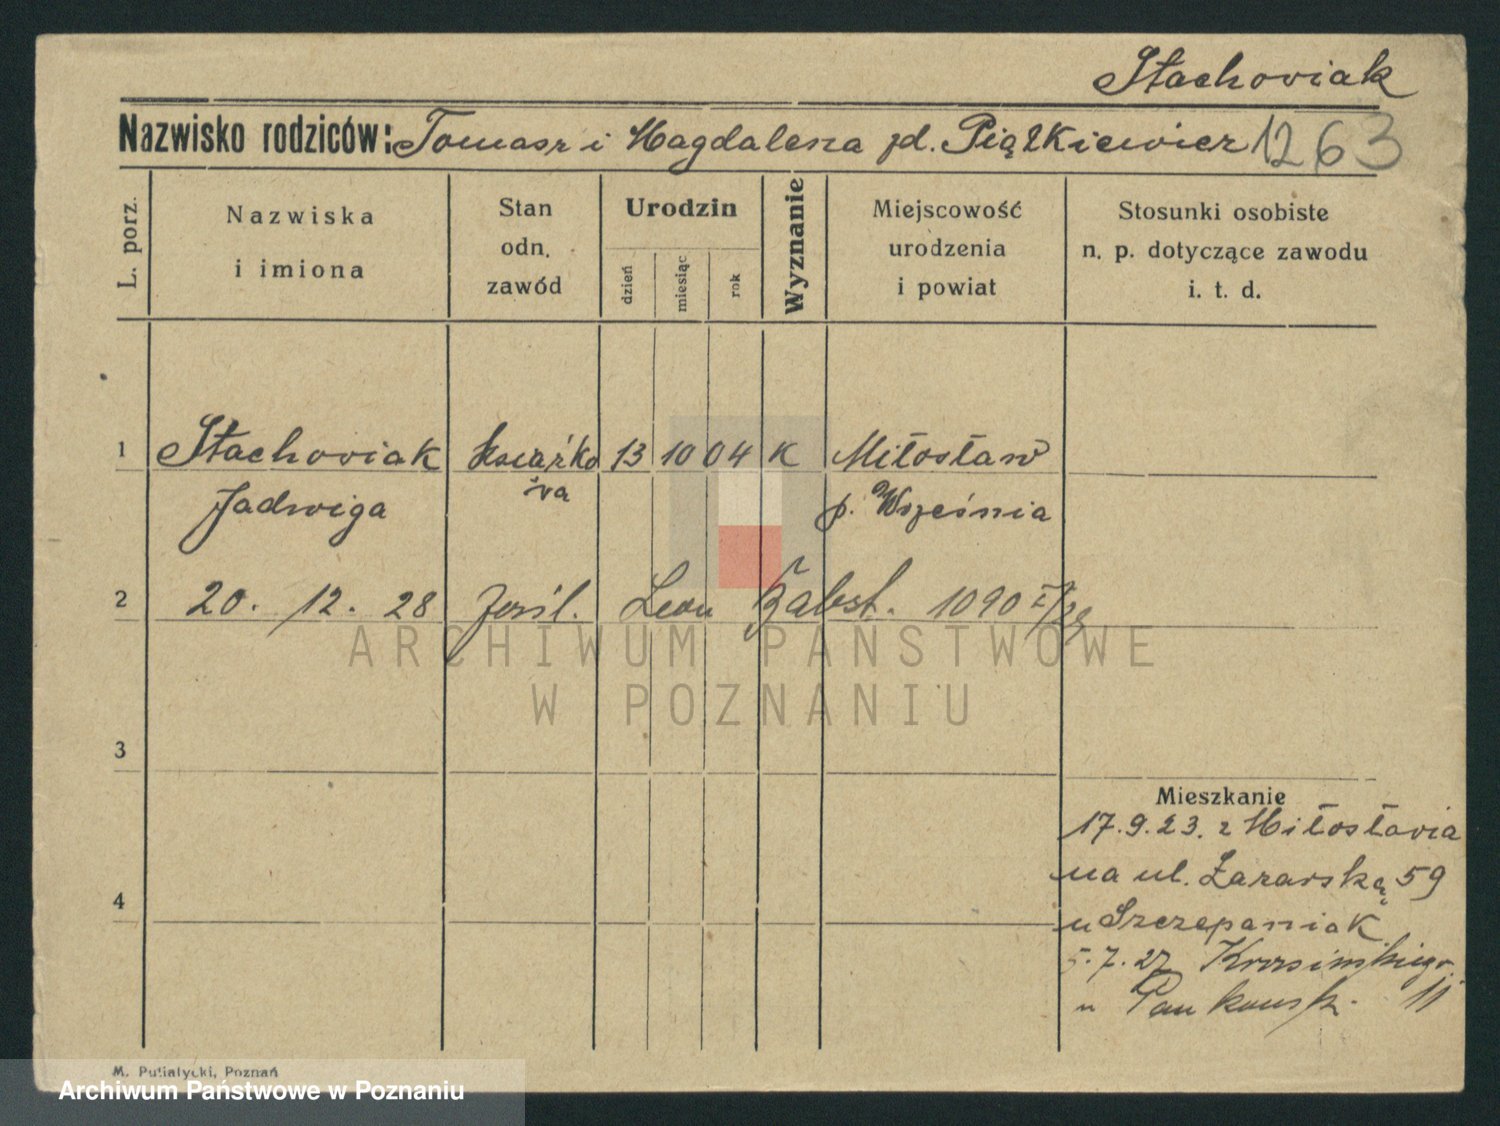 Stachoviak
Nazwisko rodziców: Tomasz i Magdalena zd. Piątkiewicz 1263
L. porz.
Nazwiska
i imiona
Stan
odn.
zawód
Urodzin
dzień
miesiąc
rok
Wyznanie
Miejscowość
urodzenia
i powiat
Stosunki osobiste
n. p. dotyczące zawodu
i. t. d.
1 Stachoviak 13 10 04 K Miłosław
Jadwiga p. Września
2 20. 12. 28 Leon 1090 I/29
3
4
Mieszkanie
17.9.23. z Miłosłavia
na ul. 59
u Szczepaniak
5.7.27
u Pankowsk. 11
ARCHIWUM PAŃSTWOWE
W POZNANIU
M. Putiatycki, Poznań
Archiwum Państwowe w Poznaniu